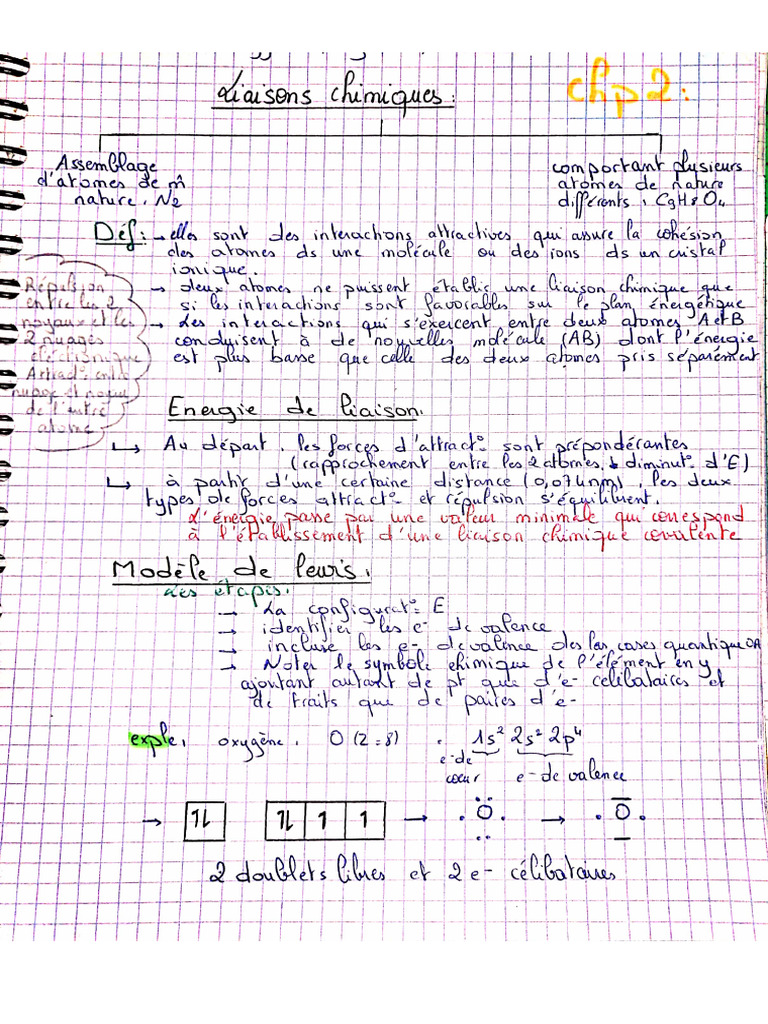 Liaisons chimiques :
chp 2 :
Assemblage
d'atomes de m̂
nature. N2
comportant plusieurs
atomes de nature
différents : C9H8O4
Déf : → elles sont des interactions attractives qui assure la cohésion
des atomes ds une molécule ou des ions ds un cristal
ionique.
→ deux atomes ne puissent établir une liaison chimique que
si les interactions sont favorables sur le plan énergétique
→ Les interactions qui s'exercent entre deux atomes A et B
conduisent à de nouvelles molécule (AB) dont l'énergie
est plus basse que celle des deux atomes pris séparément
Répulsion
entre les 2
noyaux et les
2 nuages
électronique
Attract° entre
nuage et noyau
de l'autre
atome
Energie de liaison.
↳ Au départ, les forces d'attract° sont prépondérantes
(rapprochement entre les 2 atomes, ↓ diminut° d'E)
↳ à partir d'une certaine distance (0,074nm), les deux
types de forces attract° et répulsion s'équilibrent.
L'énergie passe par une valeur minimale qui correspond
à l'établissement d'une liaison chimique covalente
Modèle de lewis.
Les étapes.
→ La configurat° E
→ identifier les e- de valence
→ incluse les e- de valence des les cases quantique OA
→ Noter le symbole chimique de l'élément en y
ajoutant autant de pt que d'e- célibataires et
de traits que de paires d'e-
exple, oxygène. O (Z=8) . 1s² 2s² 2p⁴
e-de
cœur e-de valence
→ 1L 1L 1 1 → .Ö. → .O.
2 doublets libres et 2 e- célibataires